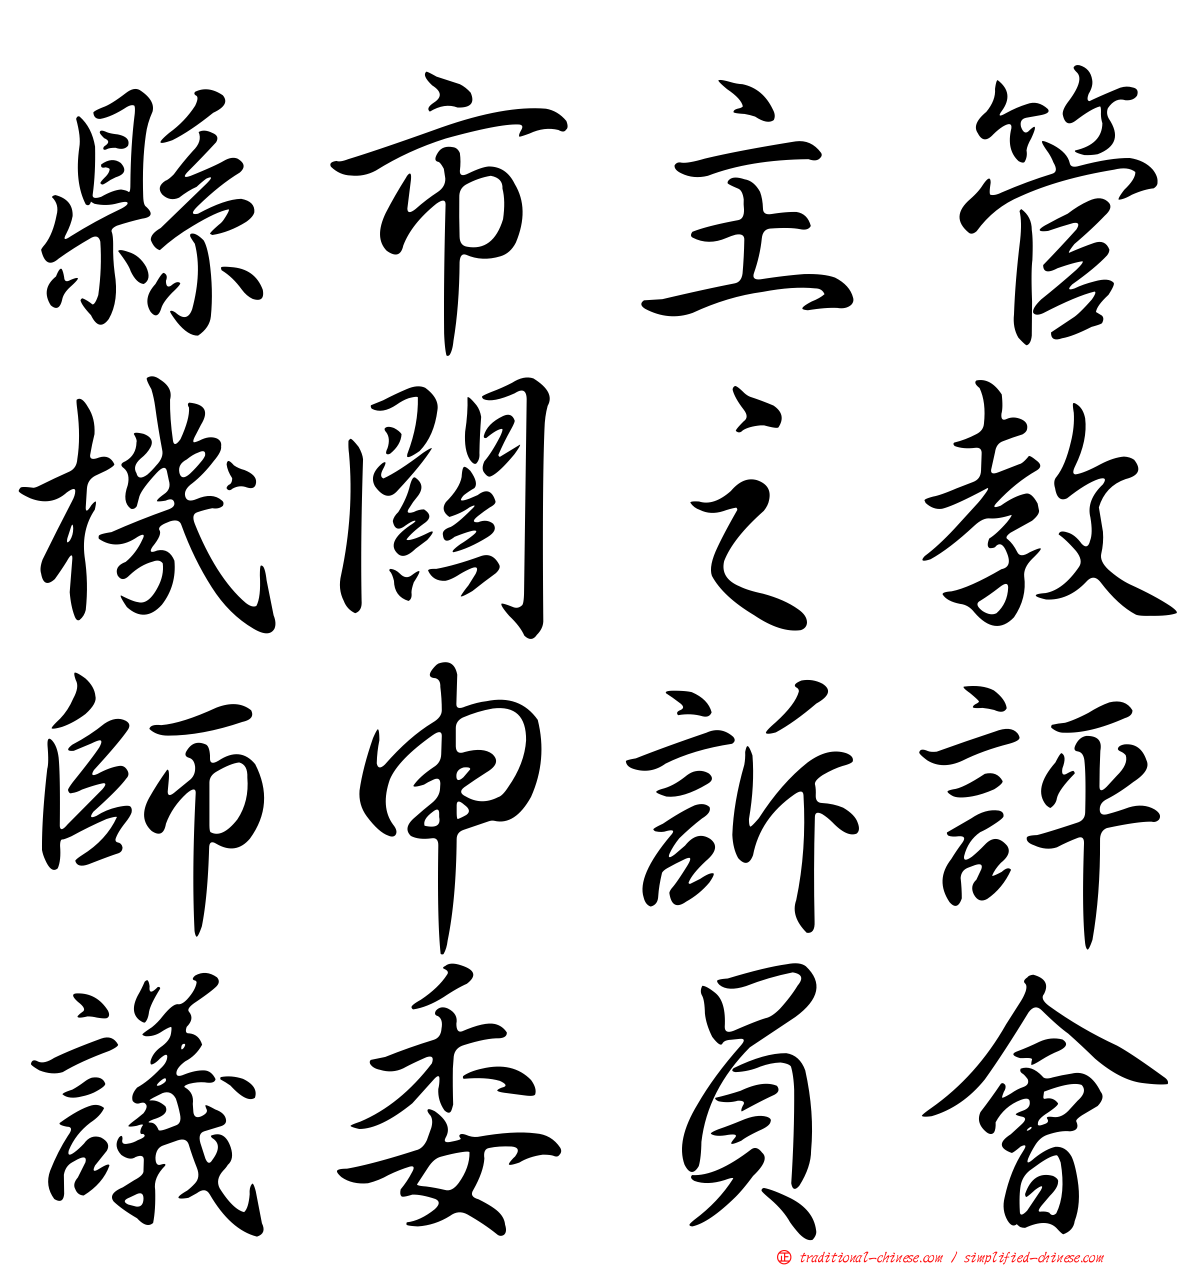 縣市主管
機關之教
師申訴評
議委員會
正 traditional-chinese.com / simplified-chinese.com